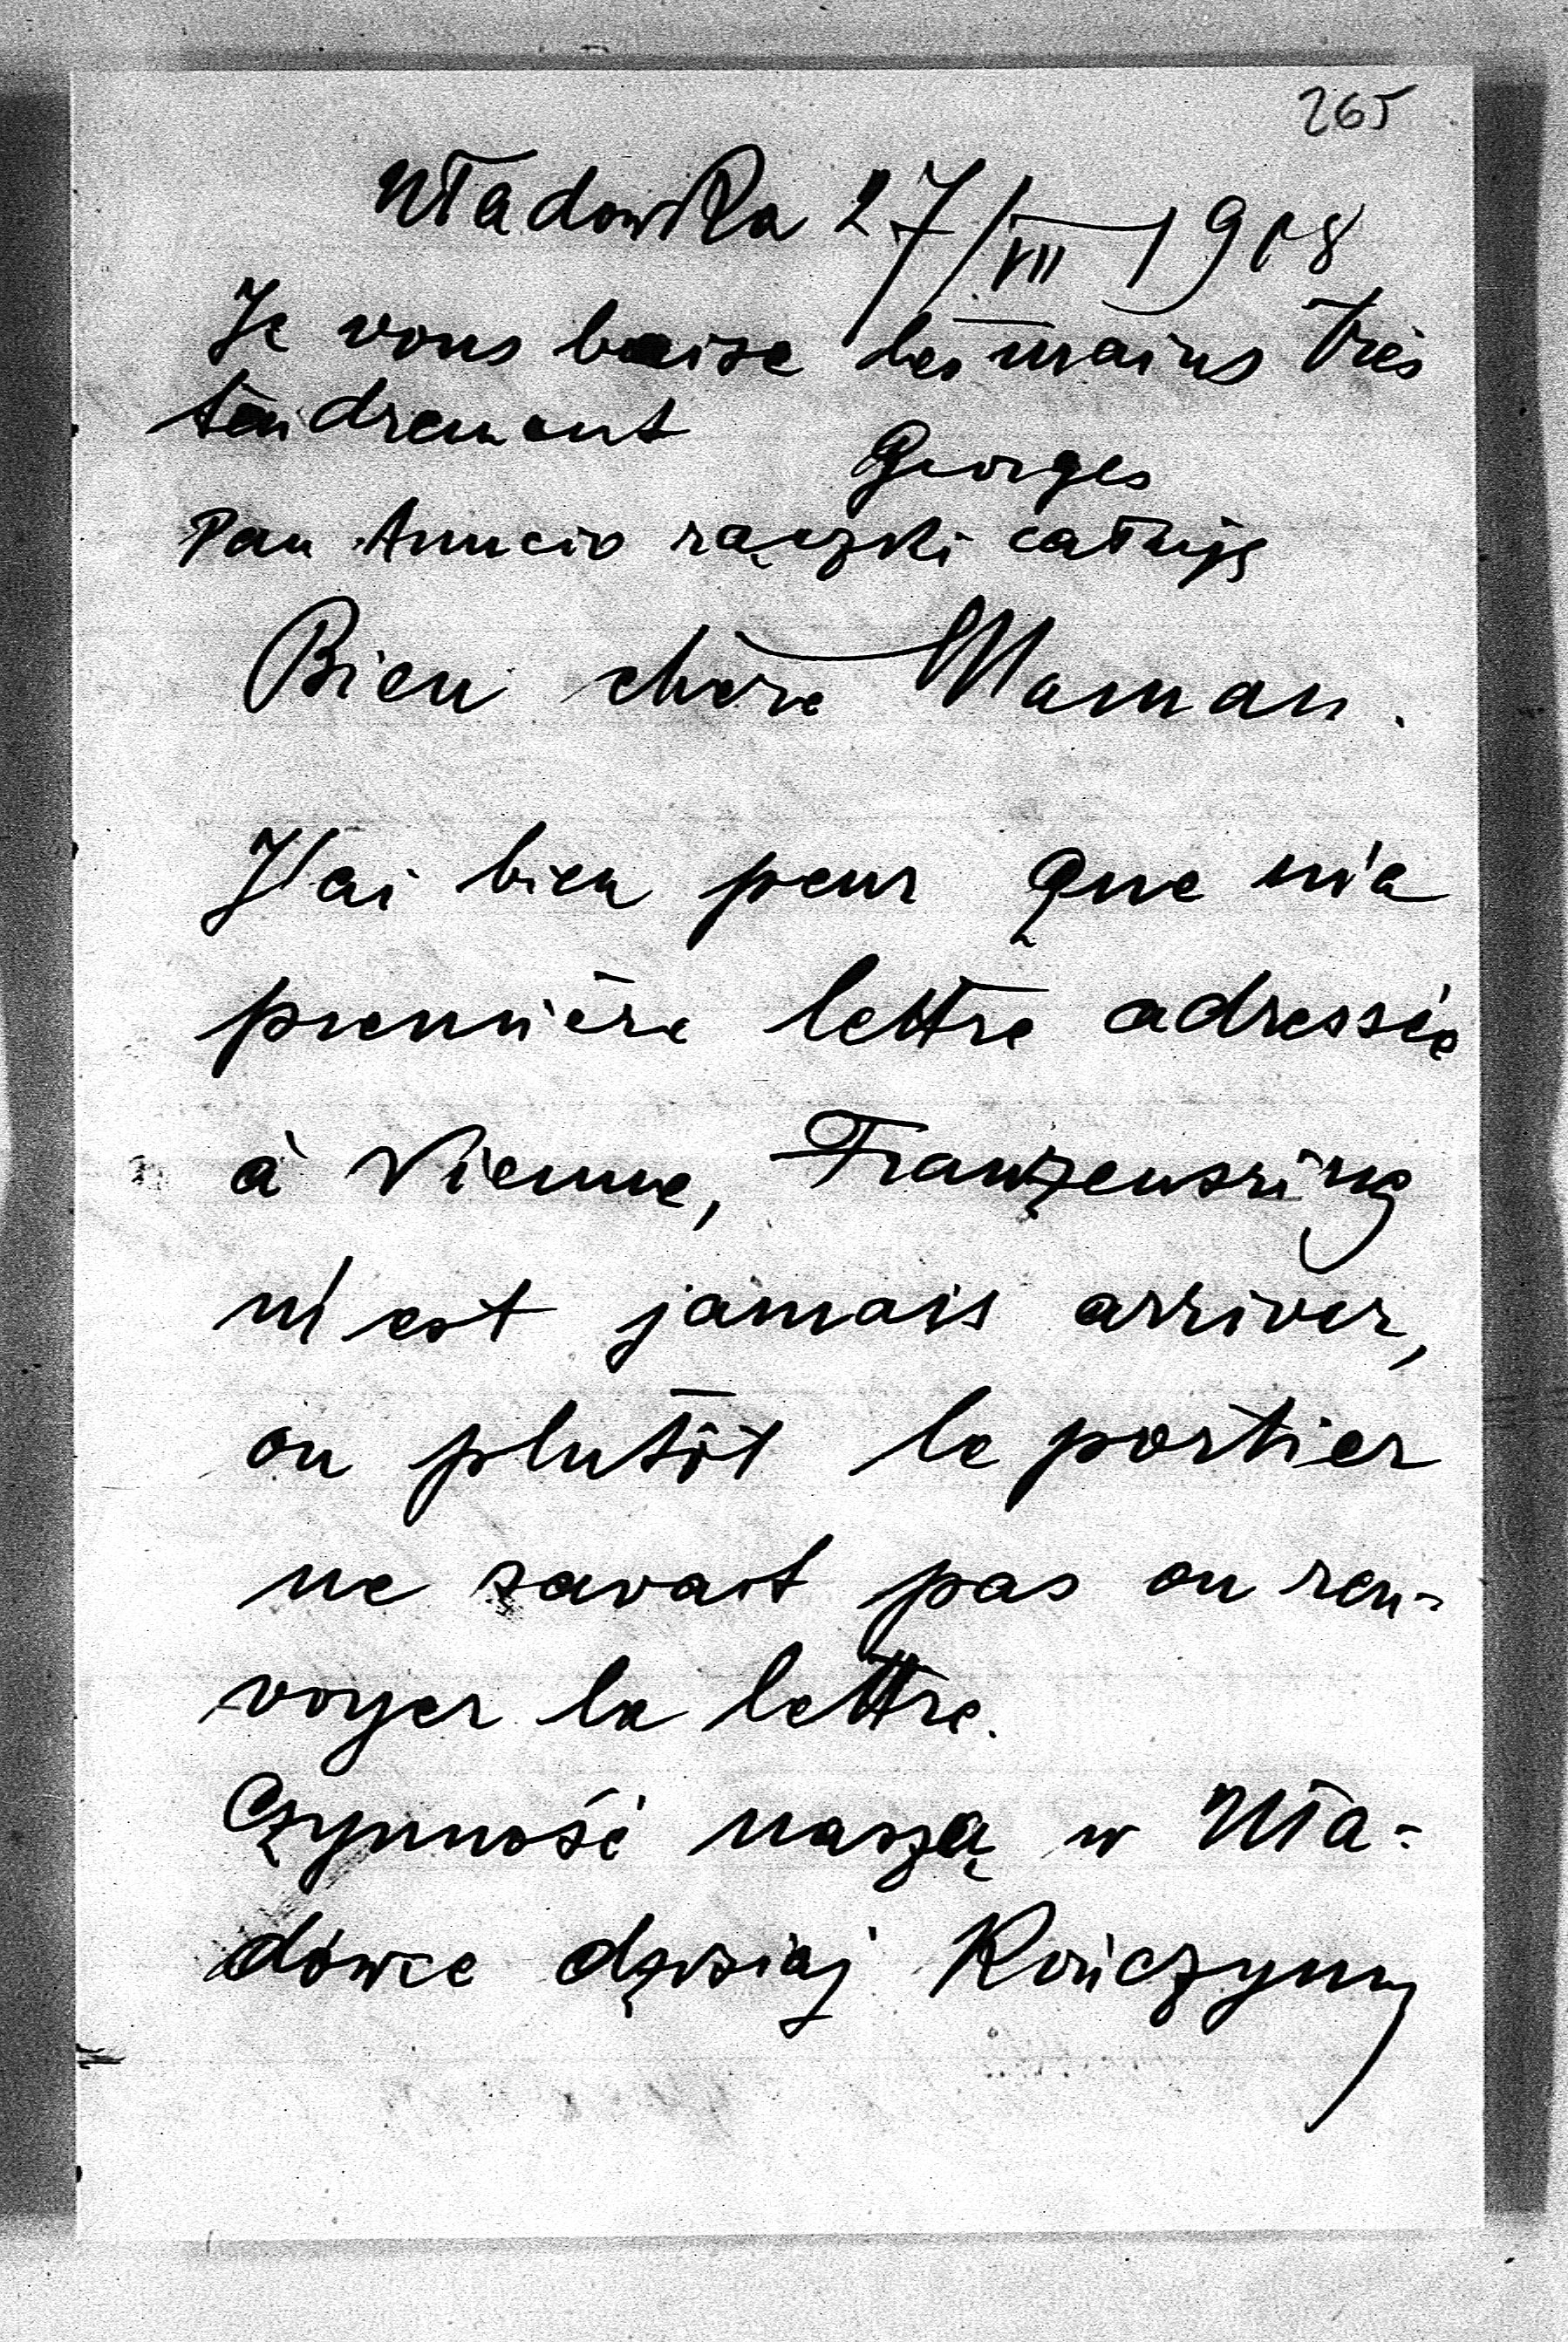 265
Władowka 27/VII 1918
Je vous baise les mains très
tendrement
Georges
Pan Anncio rączki całuję
Bien chère Maman.
J'ai bien peur que m'a
première lettre adressée
à Vienne, Franzensring
n'est jamais arriver,
ou plutôt le portier
ne savait pas ou ren-
voyer la lettre.
Czynność naszą w Wła-
dówce dzisiaj kończymy